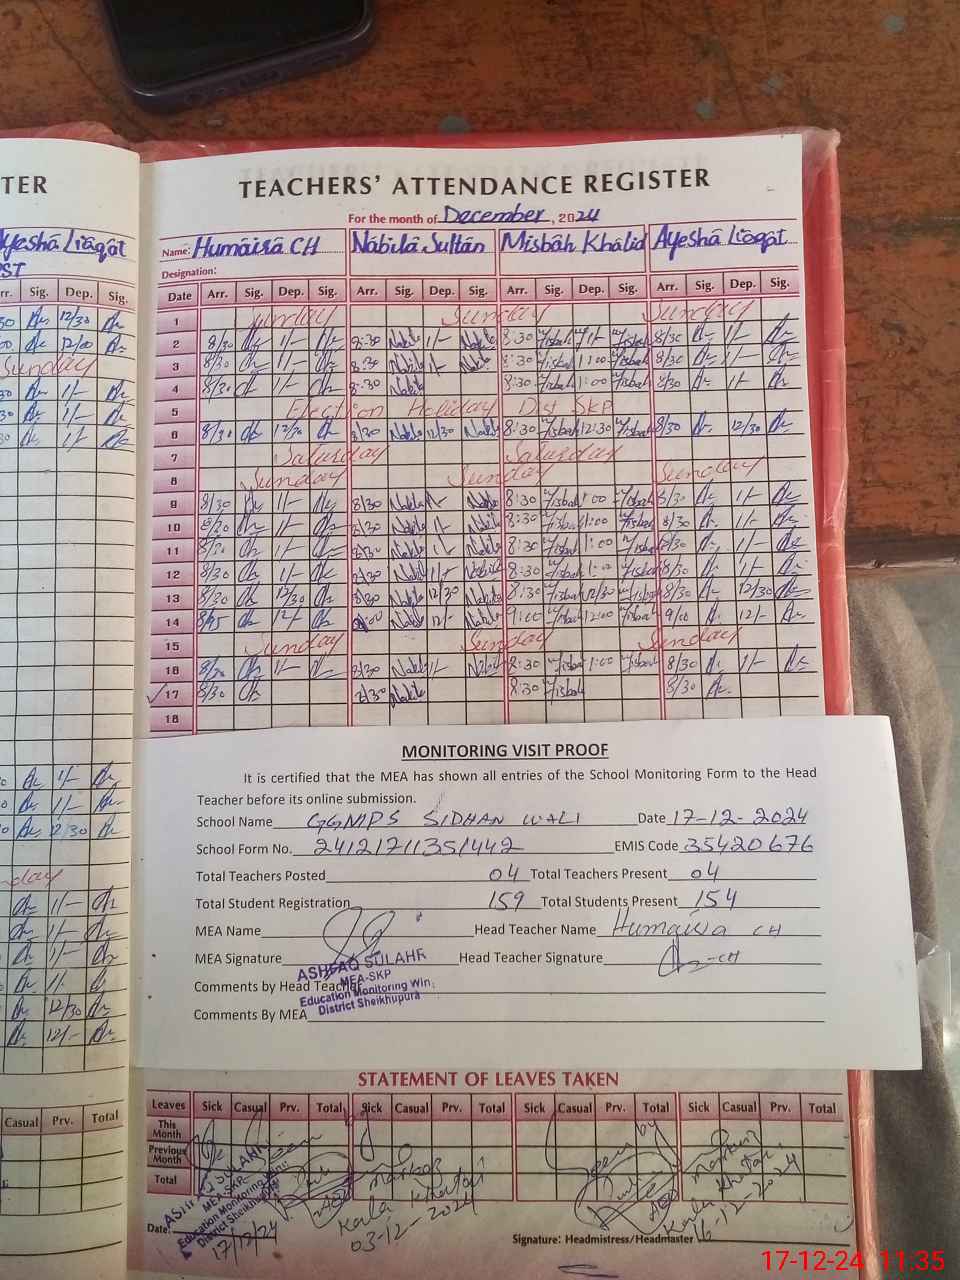 TER
TEACHERS' ATTENDANCE REGISTER
For the month of December, 2024
Ayesha Liaqat
PST
Name: Humaira CH Nabila Sultan Misbah Khalid Ayesha Liaqat
Designation:
Arr. Sig. Dep. Sig.
Date Arr. Sig. Dep. Sig. Arr. Sig. Dep. Sig. Arr. Sig. Dep. Sig. Arr. Sig. Dep. Sig.
1 Sunday Sunday Sunday
2 8/30 1/- 8:30 Nabila 1/- Nabila 8:30 Misbah 1/- Misbah 8/30 1/-
3 8/30 1/- 8:30 Nabila 1/- Nabila 8:30 Misbah 1:00 Misbah 8/30 1/-
4 8/30 1/- 8:30 Nabila 8:30 Misbah 1:00 Misbah 8/30 1/-
5 Election Holiday Dist SKP
6 8/30 12/30 8/30 Nabila 12/30 Nabila 8:30 Misbah 12:30 Misbah 8/30 12/30
7 Saturday Saturday
8 Sunday Sunday Sunday
9 8/30 1/- 8/30 Nabila 1/- Nabila 8:30 Misbah 1:00 Misbah 8/30 1/-
10 8/30 1/- 8/30 Nabila 1/- Nabila 8:30 Misbah 1:00 Misbah 8/30 1/-
11 8/30 1/- 8/30 Nabila 1/- Nabila 8:30 Misbah 1:00 Misbah 8/30 1/-
12 8/30 1/- 8/30 Nabila 1/- Nabila 8:30 Misbah 1:00 Misbah 8/30 1/-
13 8/30 12/30 8/30 Nabila 12/30 Nabila 8:30 Misbah 12/30 Misbah 8/30 12/30
14 12/- 9:00 Nabila 12/- Nabila 9:00 Misbah 12:00 Misbah 9/00 12/-
15 Sunday Sunday Sunday
16 8/30 1/- 8/30 Nabila 1/- Nabila 8:30 Misbah 1:00 Misbah 8/30 1/-
17 8/30 8/30 Nabila 8:30 Misbah 8/30
18
MONITORING VISIT PROOF
It is certified that the MEA has shown all entries of the School Monitoring Form to the Head
Teacher before its online submission.
School Name GGNIPS SIDHAN WALI Date 17-12-2024
School Form No. 24121711351442 EMIS Code 35420676
Total Teachers Posted 04 Total Teachers Present 04
Total Student Registration 159 Total Students Present 154
MEA Name Head Teacher Name Humaira CH
MEA Signature Head Teacher Signature CH
ASHFAQ SULAHR
MEA-SKP
Education Monitoring Win
District Sheikhupura
Comments by Head Teacher
Comments By MEA
STATEMENT OF LEAVES TAKEN
Casual Prv. Total
Leaves Sick Casual Prv. Total Sick Casual Prv. Total Sick Casual Prv. Total Sick Casual Prv. Total
This Month
Previous Month
Total
MEA-SKP
Education Monitoring Win
District Sheikhupura
Date: 17/12/24
Markaz
03-12-2024
Markaz
16-12-2024
Signature: Headmistress/Headmaster
17-12-24 11:35